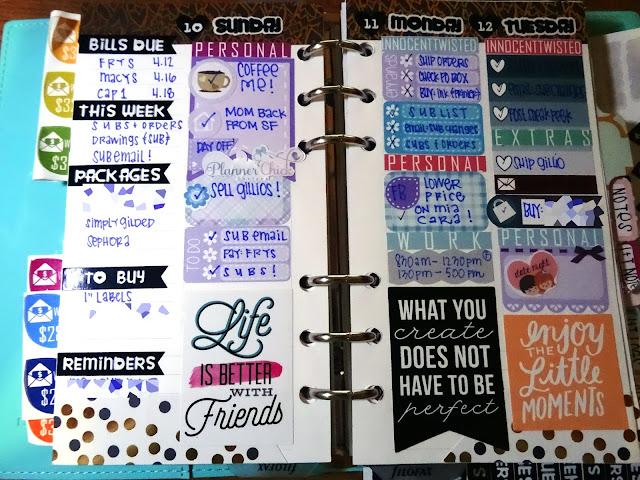 10 SUNDAY
BILLS DUE
FRYS 4.12
MACYS 4.16
CAP 1 4.18
THIS WEEK
SUBS + ORDERS
Drawings {SUB}
SUB EMAIL!
PACKAGES
Simply Gilded
SEPHORA
TO BUY
1" LABELS
REMINDERS
PERSONAL
COFFEE
ME!
MOM BACK
FROM SF
DAY OFF
Planner Chick
SELL GILLIOS!
TO DO
SUB EMAIL
PAY: FRYS
SUBS!
Life
IS BETTER
WITH
Friends
11 MONDAY
INNOCENTTWISTED
errands
SHIP ORDERS
CHECK PO BOX
BUY: INK {PRINTER}
SUB LIST
EMAIL: SUB CHANGES
SUBS + ORDERS
PERSONAL
FB
LOWER
PRICE
ON MIA
CARA!
WORK
830AM - 1230PM
130PM - 500PM
WHAT YOU
create
DOES NOT
HAVE TO BE
perfect
12 TUESDAY
INNOCENTTWISTED
POST SNEAK PEEK
EXTRAS
SHIP GILLIO
BUY:
PERSONAL
date night
enjoy
THE
Little
MOMENTS
NOTES
filofax